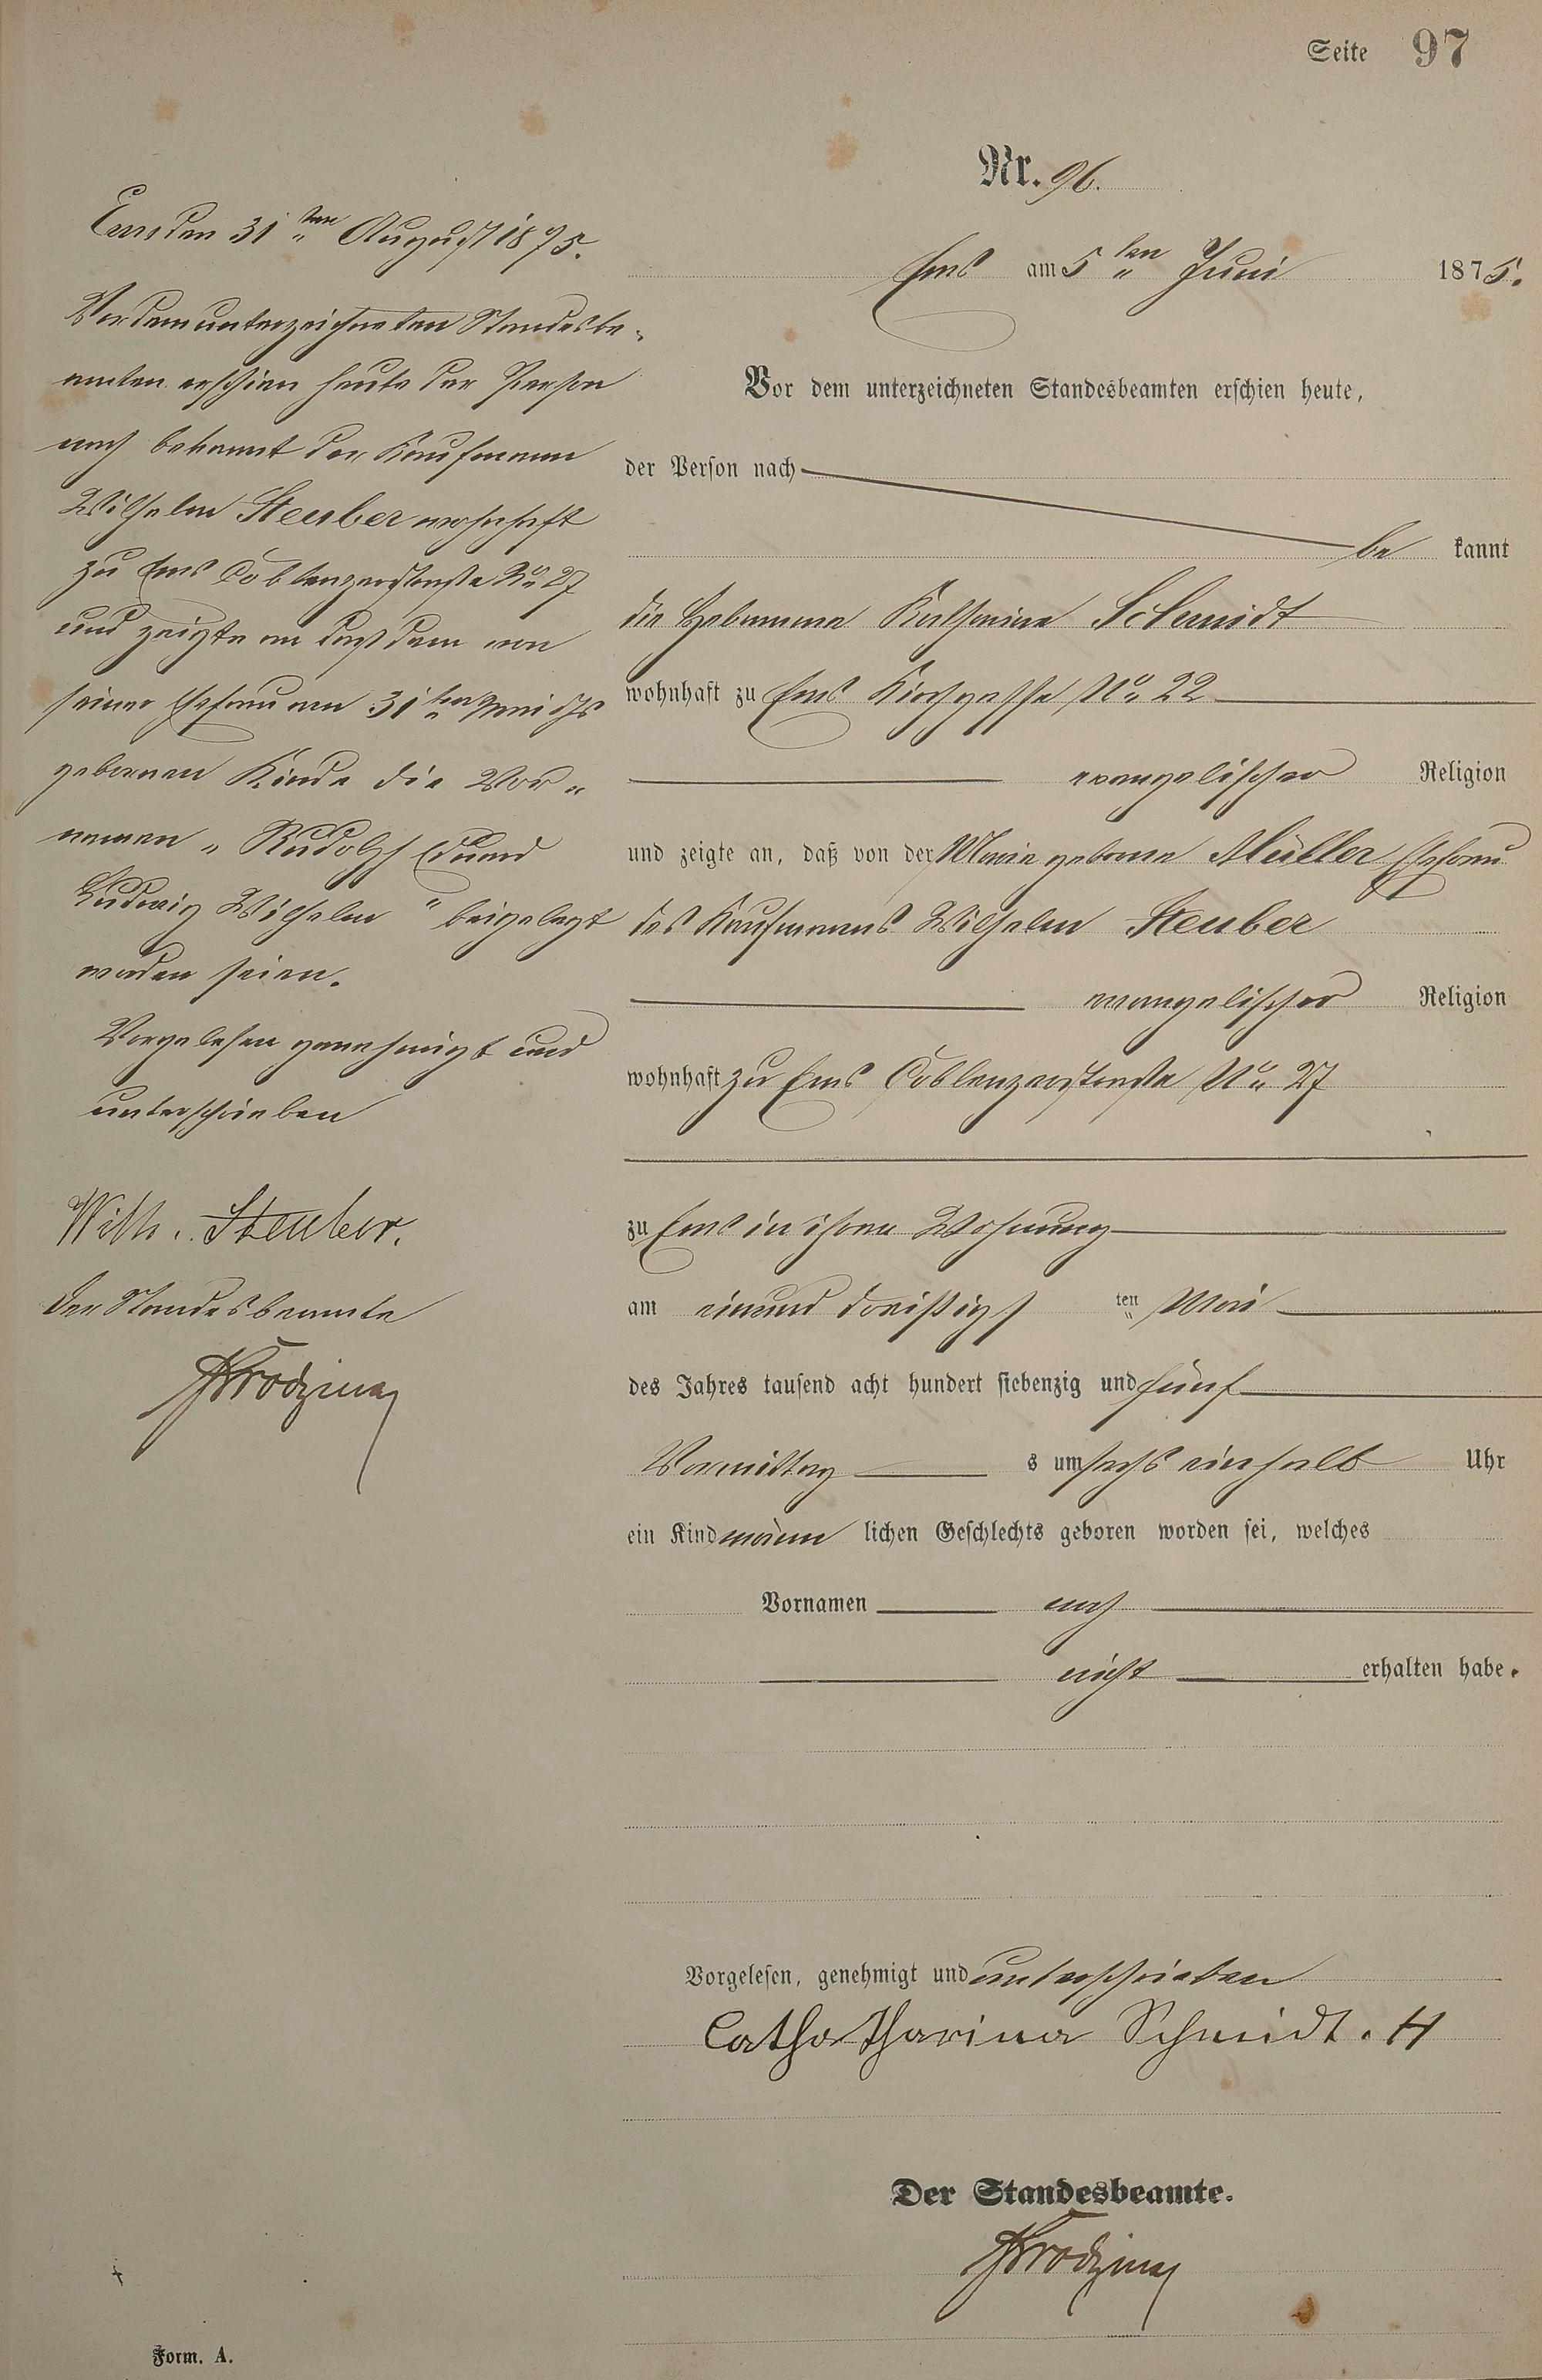 Seite 97
Nr. 96.
Ems am 5ten Juni 1875.
Vor dem unterzeichneten Standesbeamten erschien heute,
der Person nach
be kannt
die Hebamme Katharina Schmidt
wohnhaft zu Ems Kirchgasse No. 22
evangelischer Religion
und zeigte an, daß von der Marie geborene Müller Ehefrau
des Kaufmanns Wilhelm Steuber
evangelischer Religion
wohnhaft zu Ems Coblenzerstraße No. 27
zu Ems in ihrer Wohnung
am einund dreißigs ten Mai
des Jahres tausend acht hundert siebenzig und fünf
Vormittag s um sechs einhalb Uhr
ein Kind männ lichen Geschlechts geboren worden sei, welches
Vornamen noch
nicht erhalten habe.
Vorgelesen, genehmigt und unterschrieben
Cathatharina Schmidt. H
Der Standesbeamte.
Ems den 31ten August 1875.
Vor dem unterzeichneten Standesbe-
amten erschien heute der Person
nach bekannt der Kaufmann
Wilhelm Steuber wohnhaft
zu Ems Coblenzerstraße No 27
und zeigte an daß dem von
seiner Ehefrau am 31ten Mai
gebornen Kinde die Vor-
namen „Rudolph Eduard
Ludwig Wilhelm" beigelegt
worden seien.
Vorgelesen genehmigt und
unterschrieben
Wilh. Steuber.
Der Standesbeamte
Form. A.